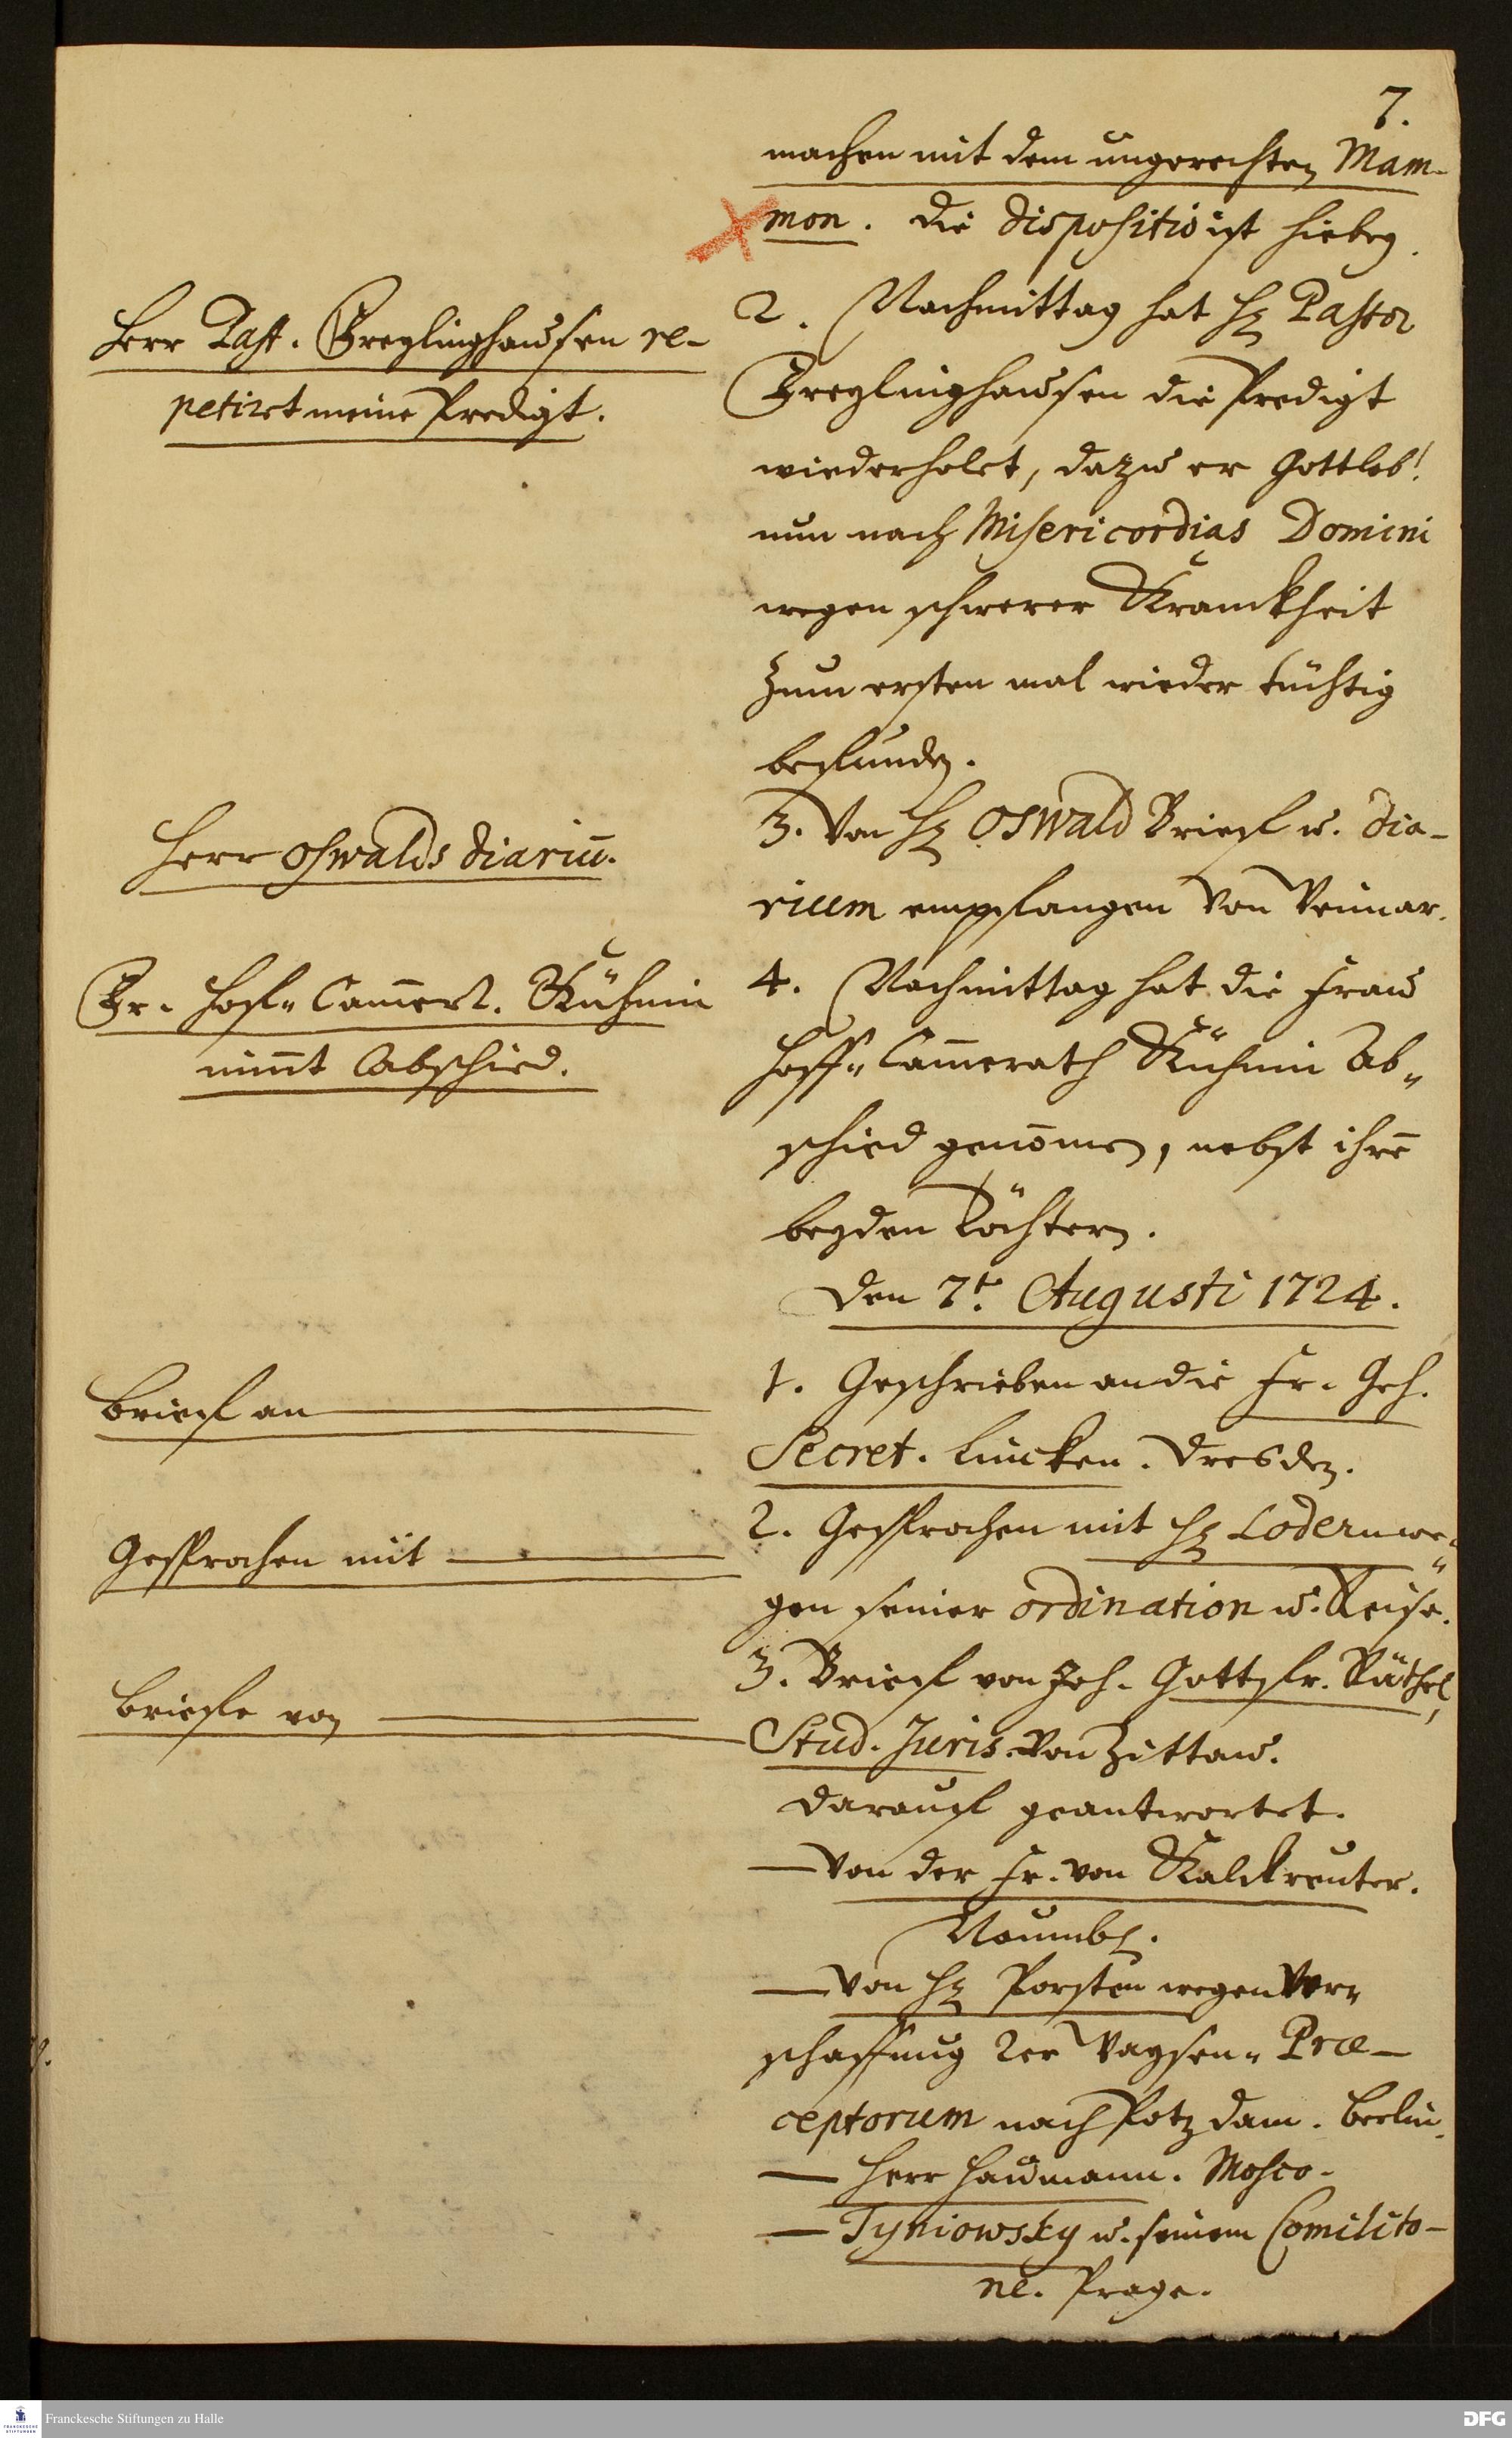 7.
machen mit dem ungerechten Mam-
mon. Die dispositio ist hiebey.
Herr Past. Freylinghausen re-
petirt meine Predigt.
2. Nachmittag hat H. Pastor
Freylinghausen die Predigt
wiederholet, dazu er Gottlob!
nun nach Misericordias Domini
wegen schwerer Kranckheit
zum ersten mal wieder tüchtig
befunden.
Herr Oswalds diariū.
3. Von H. Oswald Brieff u. Dia-
rium empfangen von Weimar.
Fr. Hoff- Cam̄err. Kühnin
nim̄t Abschied.
4. Nachmittag hat die Frau
Hoff- Cam̄errath Kühnin Ab-
schied genom̄en, nebst ihrē
beyden Töchtern.
Den 7t. Augusti 1724.
Brieff an
1. Geschrieben an die Fr. Geh.
Secret. Lincken. Dresden.
Gesprochen mit
2. Gesprochen mit H. Lodern we-
gen seiner ordination u. Reise.
Brieffe von
3. Brieff von Joh. Gottfr. Räthel,
Stud. Juris. von Zittau.
darauff geantwortet.
— Von der Fr. von Kalckreuter.
Naumb.
— Von H. Porsten wegen Ver-
schaffung 2er Waysen- Præ-
ceptorum nach Potzdam. Berlin.
— Herr Haumann. Mosco.
— Tyniowsky u. seinem Comilito-
ne. Prage.
Franckesche Stiftungen zu Halle
DFG